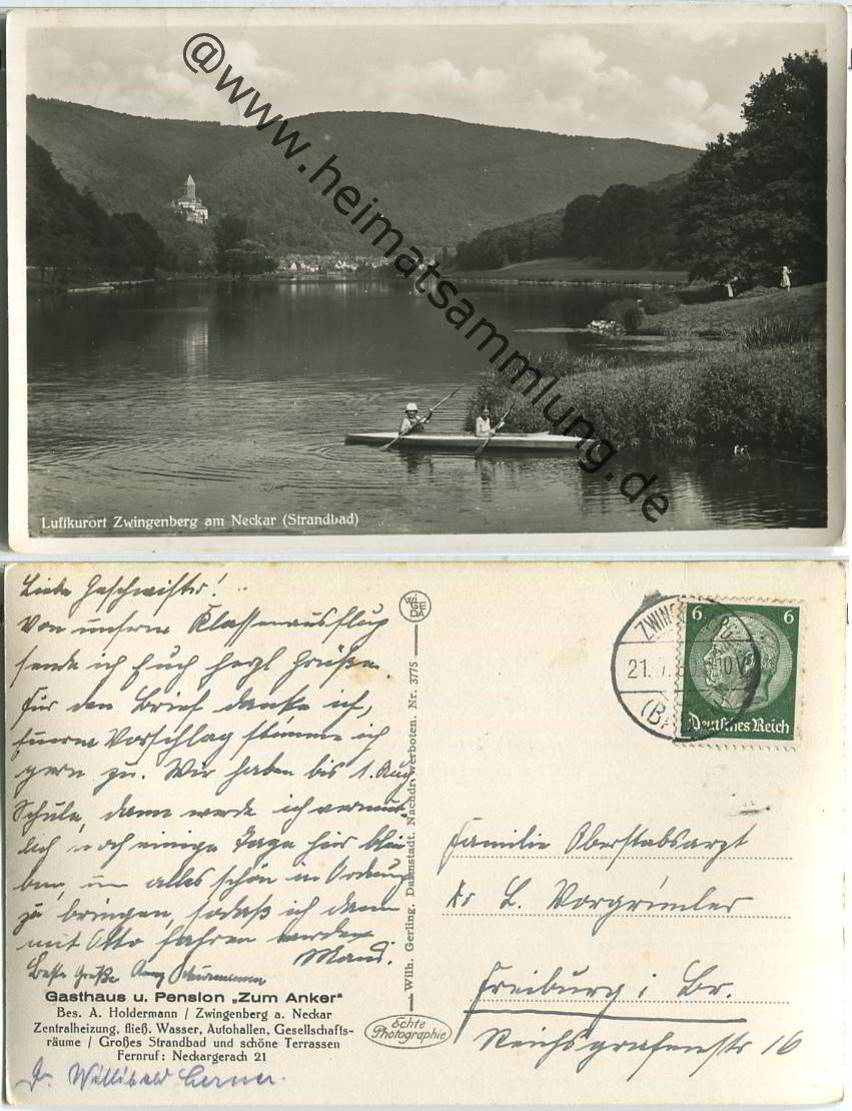 @www.heimatsammlung.de
Luftkurort Zwingenberg am Neckar (Strandbad)
Liebe Geschwister!
Von unserm Klassenausflug
sende ich Euch herzl Grüße.
Für den Brief danke ich,
Euerm Vorschlag stimme ich
gern zu. Wir haben bis 1. Aug
Schule, dann werde ich vermut-
lich noch einige Tage hier blei-
ben, um alles schön in Ordnung
zu bringen, sodaß ich dann
mit Otto fahren werde.
Beste Grüße
Gasthaus u. Pension „Zum Anker"
Bes. A. Holdermann / Zwingenberg a. Neckar
Zentralheizung, fließ. Wasser, Autohallen, Gesellschafts-
räume / Großes Strandbad und schöne Terrassen
Fernruf: Neckargerach 21
Dr. Willibald
Wilh. Gerling, Darmstadt. Nachdr. verboten. Nr. 3775
Echte
Photographie
6 6
Deutsches Reich
21. 7.
Familie Oberstabsarzt
Dr L. Vorgrimler
Freiburg i Br.
Reichsgrafenstr 16